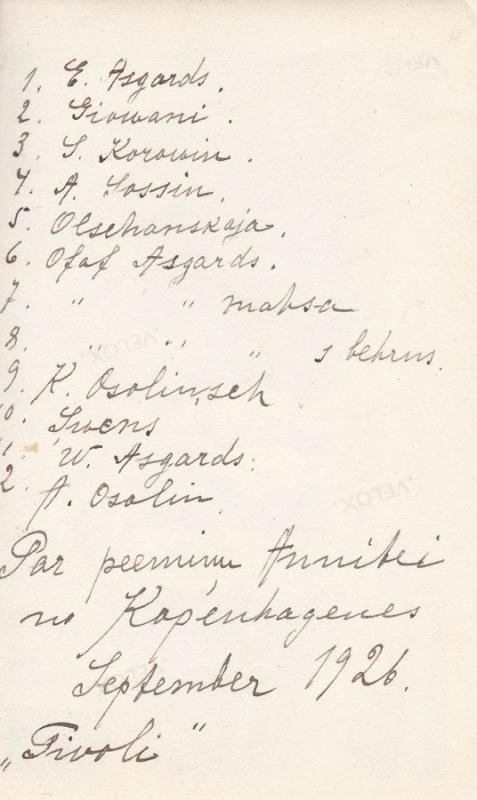 1. E. Asgards.
2. Giowani.
3. S. Korowin.
4. A. Sossin.
5. Olschanskaja.
6. Olaf Asgards.
7. " " mahsa
8. " " " s behrns.
9. K. Osolinsch
0. Swens
1. W. Asgards.
2. A. Osolin.
Par peeminu Annitei
no Kopenhagenes
September 1926.
„Tivoli"
VELOX
VELOX
VELOX